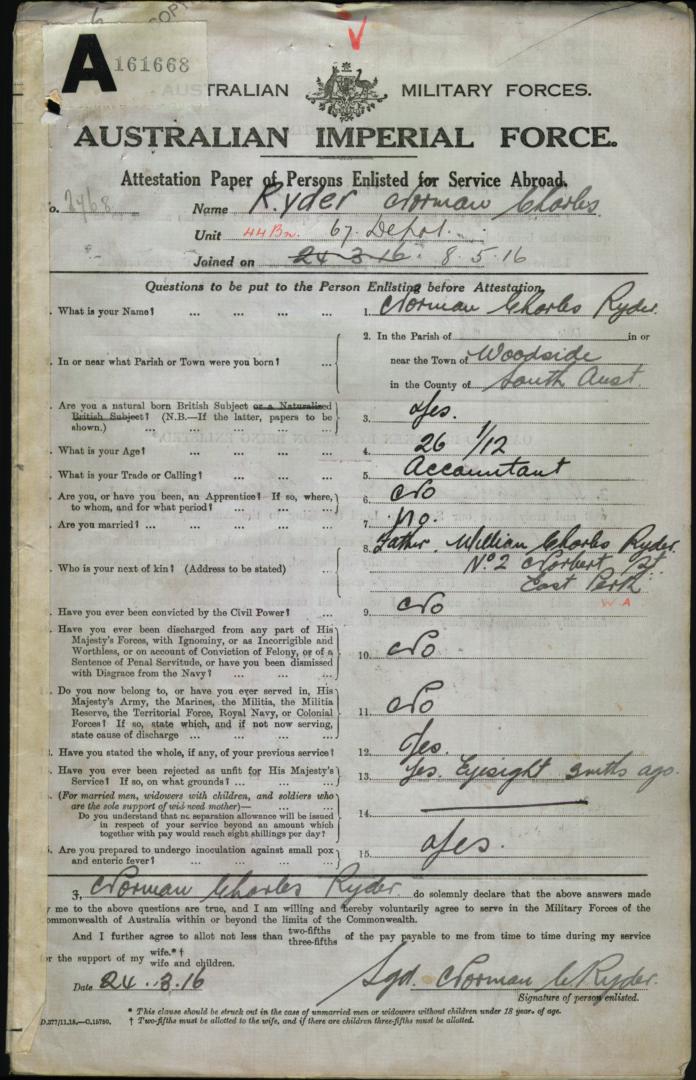 COPY
A 161668
AUSTRALIAN MILITARY FORCES.
AUSTRALIAN IMPERIAL FORCE.
Attestation Paper of Persons Enlisted for Service Abroad.
o. 2468 Name Ryder Norman Charles
Unit 44 Bn. 67. Depot.
Joined on 24-3-16. 8.5.16
Questions to be put to the Person Enlisting before Attestation.
. What is your Name? ... ... ... ... 1. Norman Charles Ryder.
2. In the Parish of in or
. In or near what Parish or Town were you born? ... near the Town of Woodside
in the County of South Aust
. Are you a natural born British Subject or a Naturalised
British Subject? (N.B.—If the latter, papers to be
shown.) ... ... ... ... 3. Yes.
. What is your Age? ... ... ... ... 4. 26 1/12
. What is your Trade or Calling? ... ... ... 5. Accountant
. Are you, or have you been, an Apprentice? If so, where,
to whom, and for what period? ... ... ... 6. No
. Are you married? ... ... ... ... 7. No.
8. Father. William Charles Ryder.
. Who is your next of kin? (Address to be stated) ... No. 2 Norbert St.
East Perth
W A
. Have you ever been convicted by the Civil Power? ... 9. No
. Have you ever been discharged from any part of His
Majesty's Forces, with Ignominy, or as Incorrigible and
Worthless, or on account of Conviction of Felony, or of a
Sentence of Penal Servitude, or have you been dismissed
with Disgrace from the Navy? ... ... ... 10. No
. Do you now belong to, or have you ever served in, His
Majesty's Army, the Marines, the Militia, the Militia
Reserve, the Territorial Force, Royal Navy, or Colonial
Forces? If so, state which, and if not now serving,
state cause of discharge ... ... ... 11. No
. Have you stated the whole, if any, of your previous service? 12. Yes.
. Have you ever been rejected as unfit for His Majesty's
Service? If so, on what grounds? ... ... ... 13. Yes. Eyesight 3 mths ago.
. (For married men, widowers with children, and soldiers who
are the sole support of widowed mother)— ... ...
Do you understand that no separation allowance will be issued
in respect of your service beyond an amount which
together with pay would reach eight shillings per day? 14.
. Are you prepared to undergo inoculation against small pox
and enteric fever? ... ... ... ... 15. Yes.
I, Norman Charles Ryder do solemnly declare that the above answers made
y me to the above questions are true, and I am willing and hereby voluntarily agree to serve in the Military Forces of the
ommonwealth of Australia within or beyond the limits of the Commonwealth.
And I further agree to allot not less than two-fifths three-fifths of the pay payable to me from time to time during my service
or the support of my wife.*† wife and children.
Date 24.3.16 Sgd. Norman C Ryder.
Signature of person enlisted.
* This clause should be struck out in the case of unmarried men or widowers without children under 18 years of age.
† Two-fifths must be allotted to the wife, and if there are children three-fifths must be allotted.
D.377/11.15.—C.15790.